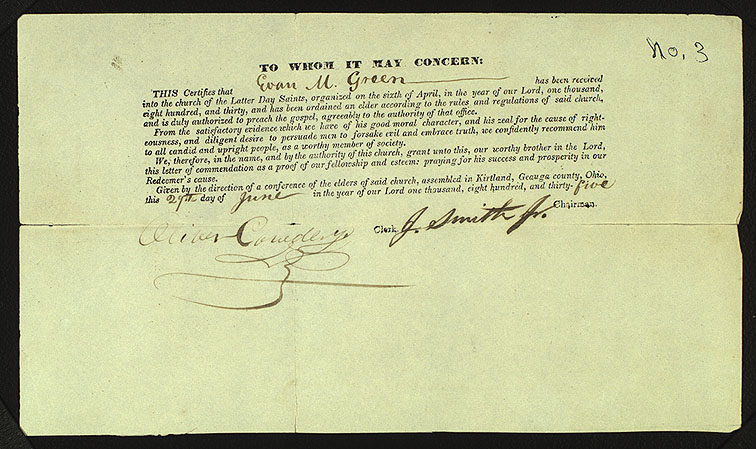 No. 3
TO WHOM IT MAY CONCERN:
THIS Certifies that Evan M. Green has been received
into the church of the Latter Day Saints, organized on the sixth of April, in the year of our Lord, one thousand,
eight hundred, and thirty, and has been ordained an elder according to the rules and regulations of said church,
and is duly authorized to preach the gospel, agreeably to the authority of that office.
From the satisfactory evidence which we have of his good moral character, and his zeal for the cause of right-
eousness, and diligent desire to persuade men to forsake evil and embrace truth, we confidently recommend him
to all candid and upright people, as a worthy member of society.
We, therefore, in the name, and by the authority of this church, grant unto this, our worthy brother in the Lord,
this letter of commendation as a proof of our fellowship and esteem: praying for his success and prosperity in our
Redeemer's cause.
Given by the direction of a conference of the elders of said church, assembled in Kirtland, Geauga county, Ohio,
this 29th day of June in the year of our Lord one thousand, eight hundred, and thirty-five
J. Smith Jr. Chairman.
Oliver Cowdery Clerk